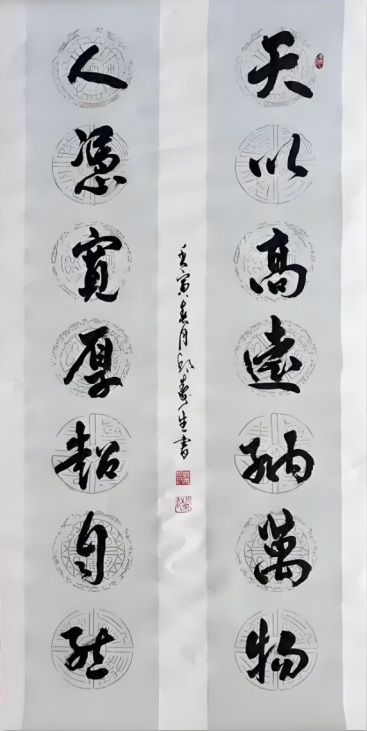 天以高遠納萬物
人憑寬厚超自然
壬寅春月邱生書